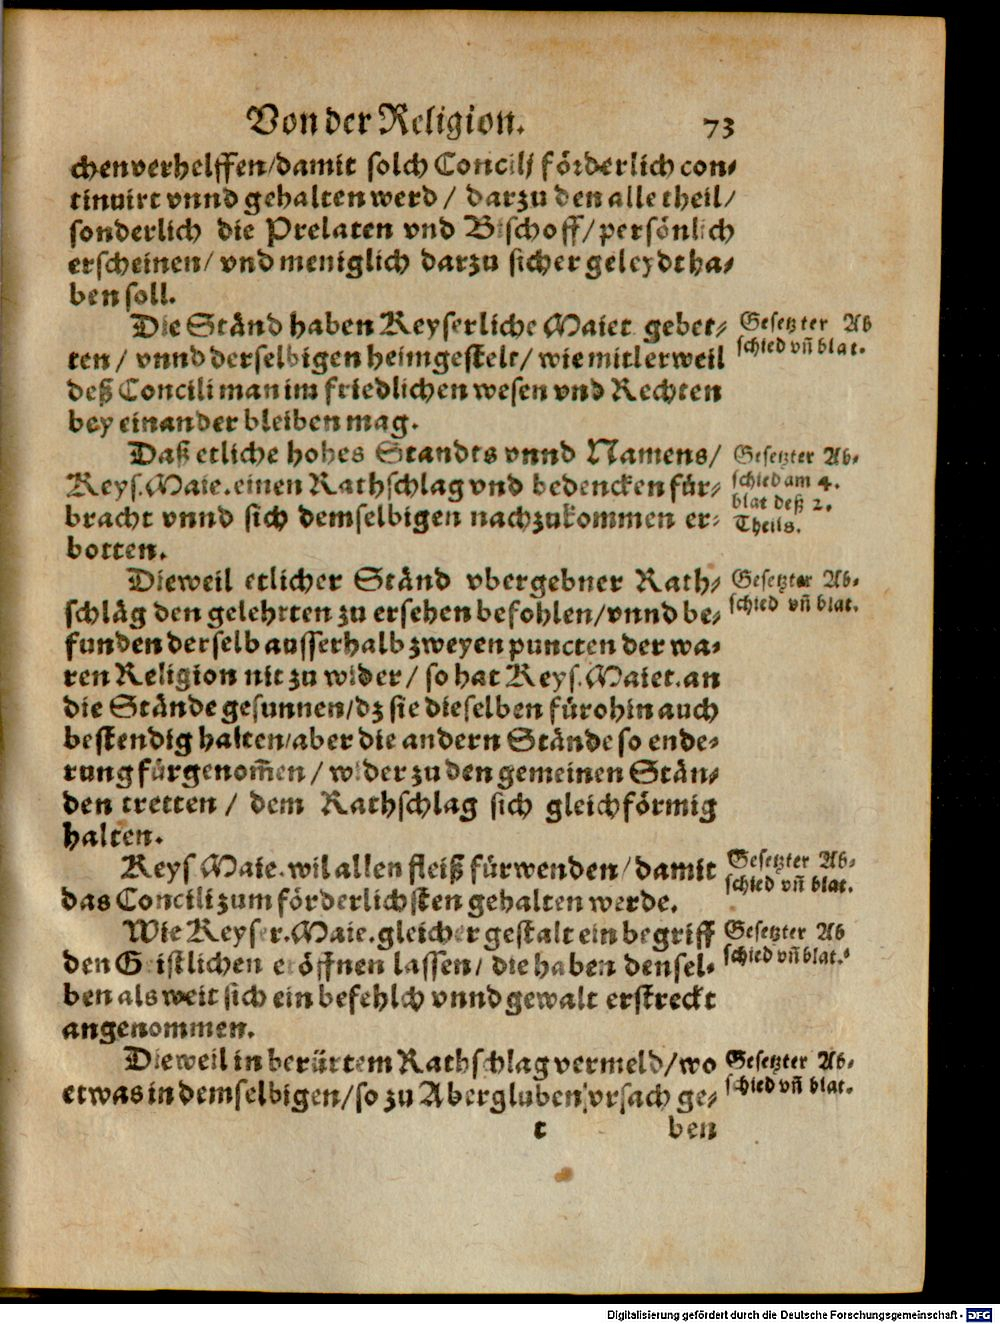 Von der Religion. 73
chen verhelffen/damit solch Concilj förderlich con-
tinuirt vnnd gehalten werd / darzu den alle theil/
sonderlich die Prelaten vnd Bischoff/persönlich
erscheinen/ vnd meniglich darzu sicher geleydt ha-
ben soll.
Die Ständ haben Keyserliche Maiet. gebet-
ten / vnnd derselbigen heimgestelt/ wie mitlerweil
deß Concili man im friedlichen wesen vnd Rechten
bey einander bleiben mag.
Gesetzter Ab
schied vn̄ blat.
Daß etliche hohes Standts vnnd Namens/
Keys. Maie. einen Rathschlag vnd bedencken für-
bracht vnnd sich demselbigen nachzukommen er-
botten.
Gesetzter Ab-
schied am 4.
blat deß 2.
Theils.
Dieweil etlicher Ständ vbergebner Rath-
schläg den gelehrten zu ersehen befohlen/vnnd be-
funden derselb ausserhalb zweyen puncten der wa-
ren Religion nit zu wider/ so hat Keys. Maiet. an
die Stände gesunnen/dz sie dieselben fürohin auch
bestendig halten/aber die andern Stände so ende-
rung fürgenom̄en / wider zu den gemeinen Stän-
den tretten / dem Rathschlag sich gleichförmig
halten.
Gesetzter Ab-
schied vn̄ blat.
Keys Maie. wil allen fleiß fürwenden/damit
das Concili zum förderlichsten gehalten werde.
Gesetzter Ab-
schied vn̄ blat.
Wie Keyser. Maie. gleicher gestalt ein begriff
den Geistlichen eröffnen lassen/ die haben densel-
ben als weit sich ein befehlch vnnd gewalt erstreckt
angenommen.
Gesetzter Ab
schied vn̄ blat.
Dieweil in berürtem Rathschlag vermeld/wo
etwas in demselbigen/so zu Abergluben vrsach ge-
Gesetzter Ab-
schied vn̄ blat.
t ben
Digitalisierung gefördert durch die Deutsche Forschungsgemeinschaft - DFG